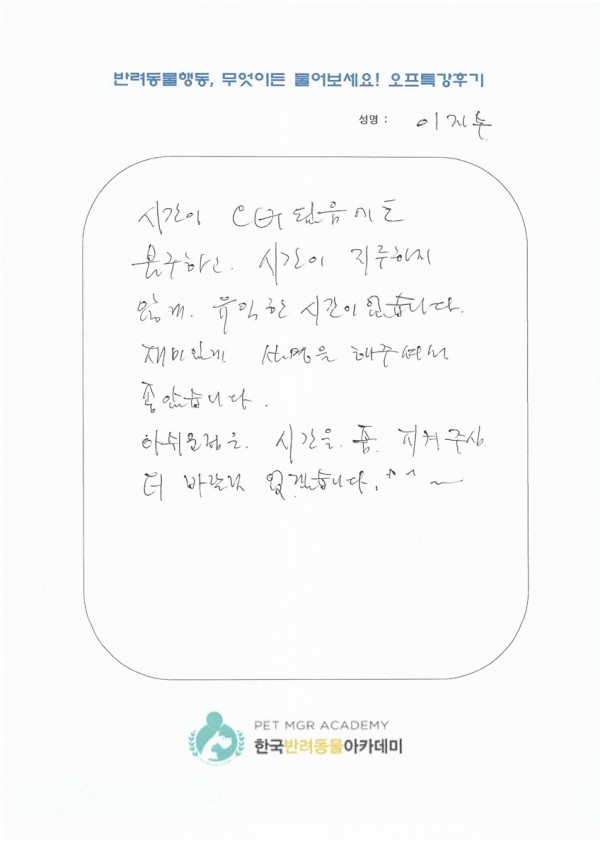 반려동물행동, 무엇이든 물어보세요! 오프특강후기
성명 : 이지
시간이 딜음에도
불구하고. 시간이 지루하지
않게. 유익한 시간이었습니다.
재미있게 설명을 해주셔서
좋았습니다.
아쉬운점은. 시간을. 좀. 지켜주심.
더 바랄게 없겠습니다. ^^ ~
PET MGR ACADEMY
한국반려동물아카데미